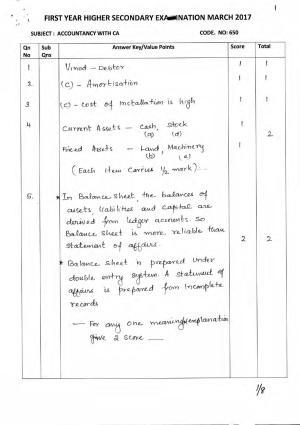 1
FIRST YEAR HIGHER SECONDARY EXAMINATION MARCH 2017
SUBJECT : ACCOUNTANCY WITH CA CODE. NO: 650
Qn No Sub Qns Answer Key/Value Points Score Total
1. Vinod - Debtor 1 1
2. (c) - Amortisation 1 1
3 (c) - Cost of installation is high 1 1
4 Current Assets - Cash, Stock 1
(a) (d) 2
Fixed Assets - Land, Machinery 1
(b) (c)
(Each item carries 1/2 mark).
5. * In Balance Sheet, the balances of
assets, liabilities and capital are
derived from ledger accounts. So
Balance Sheet is more reliable than
Statement of affairs. 2 2
* Balance sheet is prepared under
double entry system. A statement of
affairs is prepared from incomplete
records
— For any one meaningful explanation
give 2 score —
1/8